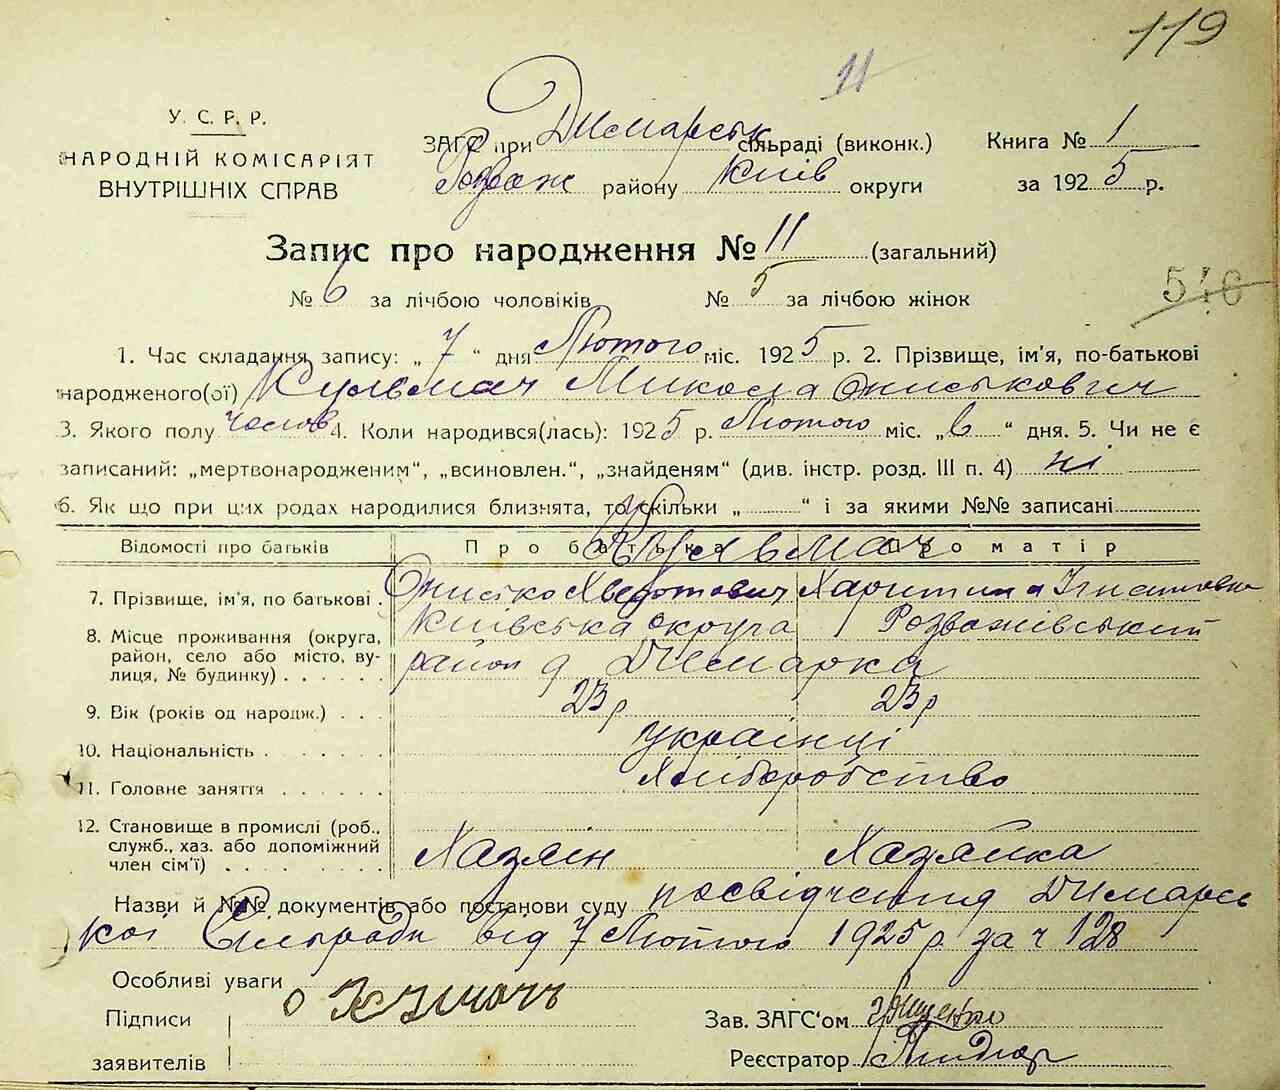 119
11
У. С. Р. Р.
НАРОДНІЙ КОМІСАРІЯТ
ВНУТРІШНІХ СПРАВ
ЗАГС при Димарськ сільраді (виконк.) Книга № 1
Розваж району Київ округи за 1925 р.
Запис про народження № 11 (загальний)
№ 6 за лічбою чоловіків № 5 за лічбою жінок
546
1. Час складання запису: „ 7 “ дня Лютого міс. 1925 р. 2. Прізвище, ім'я, по-батькові
народженого(ої) Кульмач МиколаОниськович
3. Якого полу чолов 4. Коли народився(лась): 1925 р. Лютого міс. „ 6 “ дня. 5. Чи не є
записаний: „мертвонародженим“, „всиновлен.“, „знайденям“ (див. інстр. розд. III п. 4) ні
6. Як що при цих родах народилися близнята, то скільки „ “ і за якими №№ записані
Відомості про батьків Про батька Про матір
Кульмач
7. Прізвище, ім'я, по батькові Онисіко Хведотович Харитина Ігнатовна
8. Місце проживання (округа, Київська округа Розважівський
район, село або місто, ву- район д Димарка
лиця, № будинку)
9. Вік (років од народж.) 23 р 23 р
10. Національність Українці
11. Головне заняття Хліборобство
12. Становище в промислі (роб.,
служб., хаз. або допоміжний
член сім'ї) Хазяін Хазяйка
Назви й №№ документів або постанови суду посвідчення Димарсь
коі Сильради від 7 Лютого 1925 р за ч 128
Особливі уваги
Підписи О Кульмачь Зав. ЗАГС'ом
заявителів Реєстратор